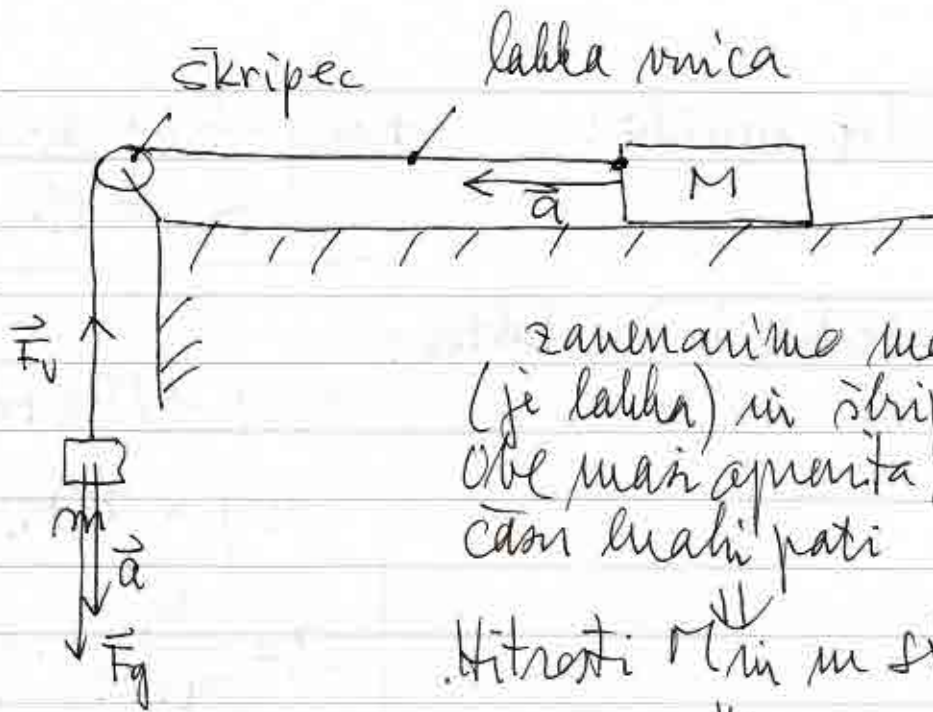 škripec
lahka vrvica
M
a
F_v
zanemarimo
(je lahka) in
Obe masi opravita
času enaki poti
m
a
F_g
Hitrosti M in m